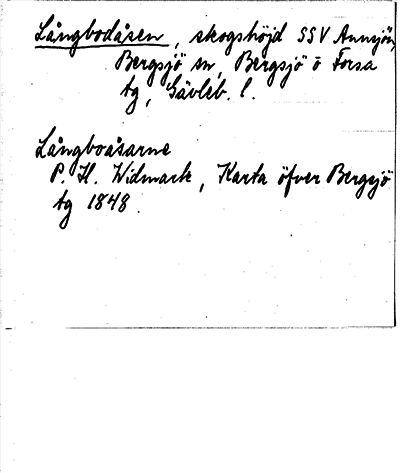 Långbodåsen, skogshöjd SSV Annsjön,
Bergsjö sn, Bergsjö o Forsa
tg, Gävleb. l.
Långboåsarne
P. H. Widmark, Karta öfver Bergsjö
tg 1848.